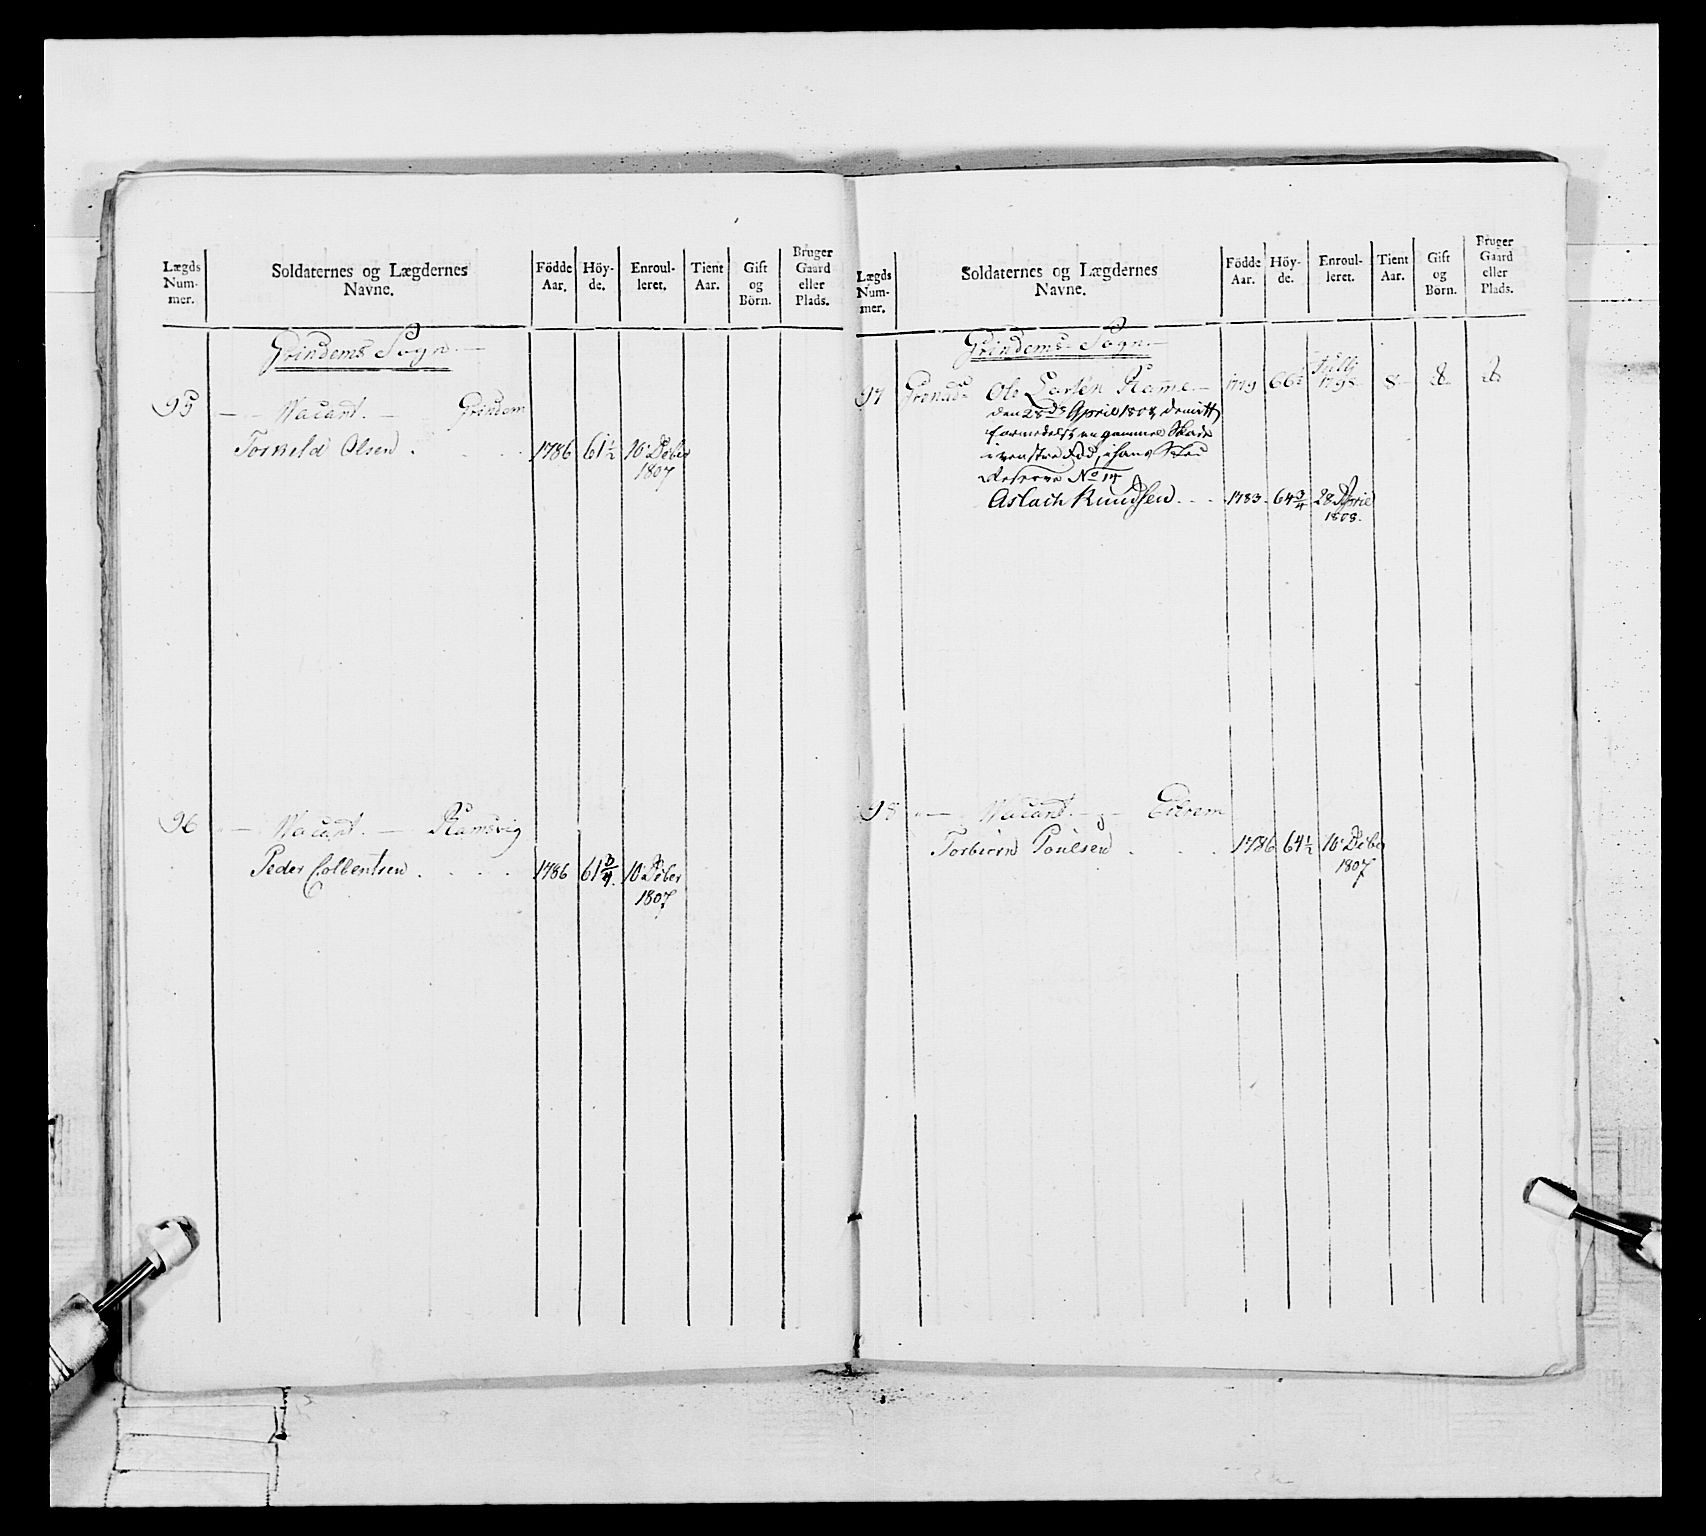 Lægds Num- mer.
Soldaternes og Lægdernes Navne.
Födde Aar.
Höy- de.
Enroul- leret.
Tient Aar.
Gift og Börn.
Bruger Gaard eller Plads.
Grindems Sogn.
95 — Vacant. — Grindem
Torkild Olsen . . . . 1786 61 1/2 10 Dcbr
1807
96 — Vacant. — Ramsvig
Peder Colbentsen . . . . 1786 61 3/4 10 Dcbr
1807
Lægds Num- mer.
Soldaternes og Lægdernes Navne.
Födde Aar.
Höy- de.
Enroul- leret.
Tient Aar.
Gift og Börn.
Bruger Gaard eller Plads.
Grindems Sogn.
97 Ole Larsen 66 1798 8
den 28de April 1808 demitt
formedelst en gammel Skade
i venstre Fod, i hans Sted
Reserve No 14
Aslach Knudsen . . . 1783 64 3/4 28 April
1808.
98 — Vacant. — Eitrem
Torbiørn Poulsen . . . 1786 64 1/2 10 Dcbr
1807